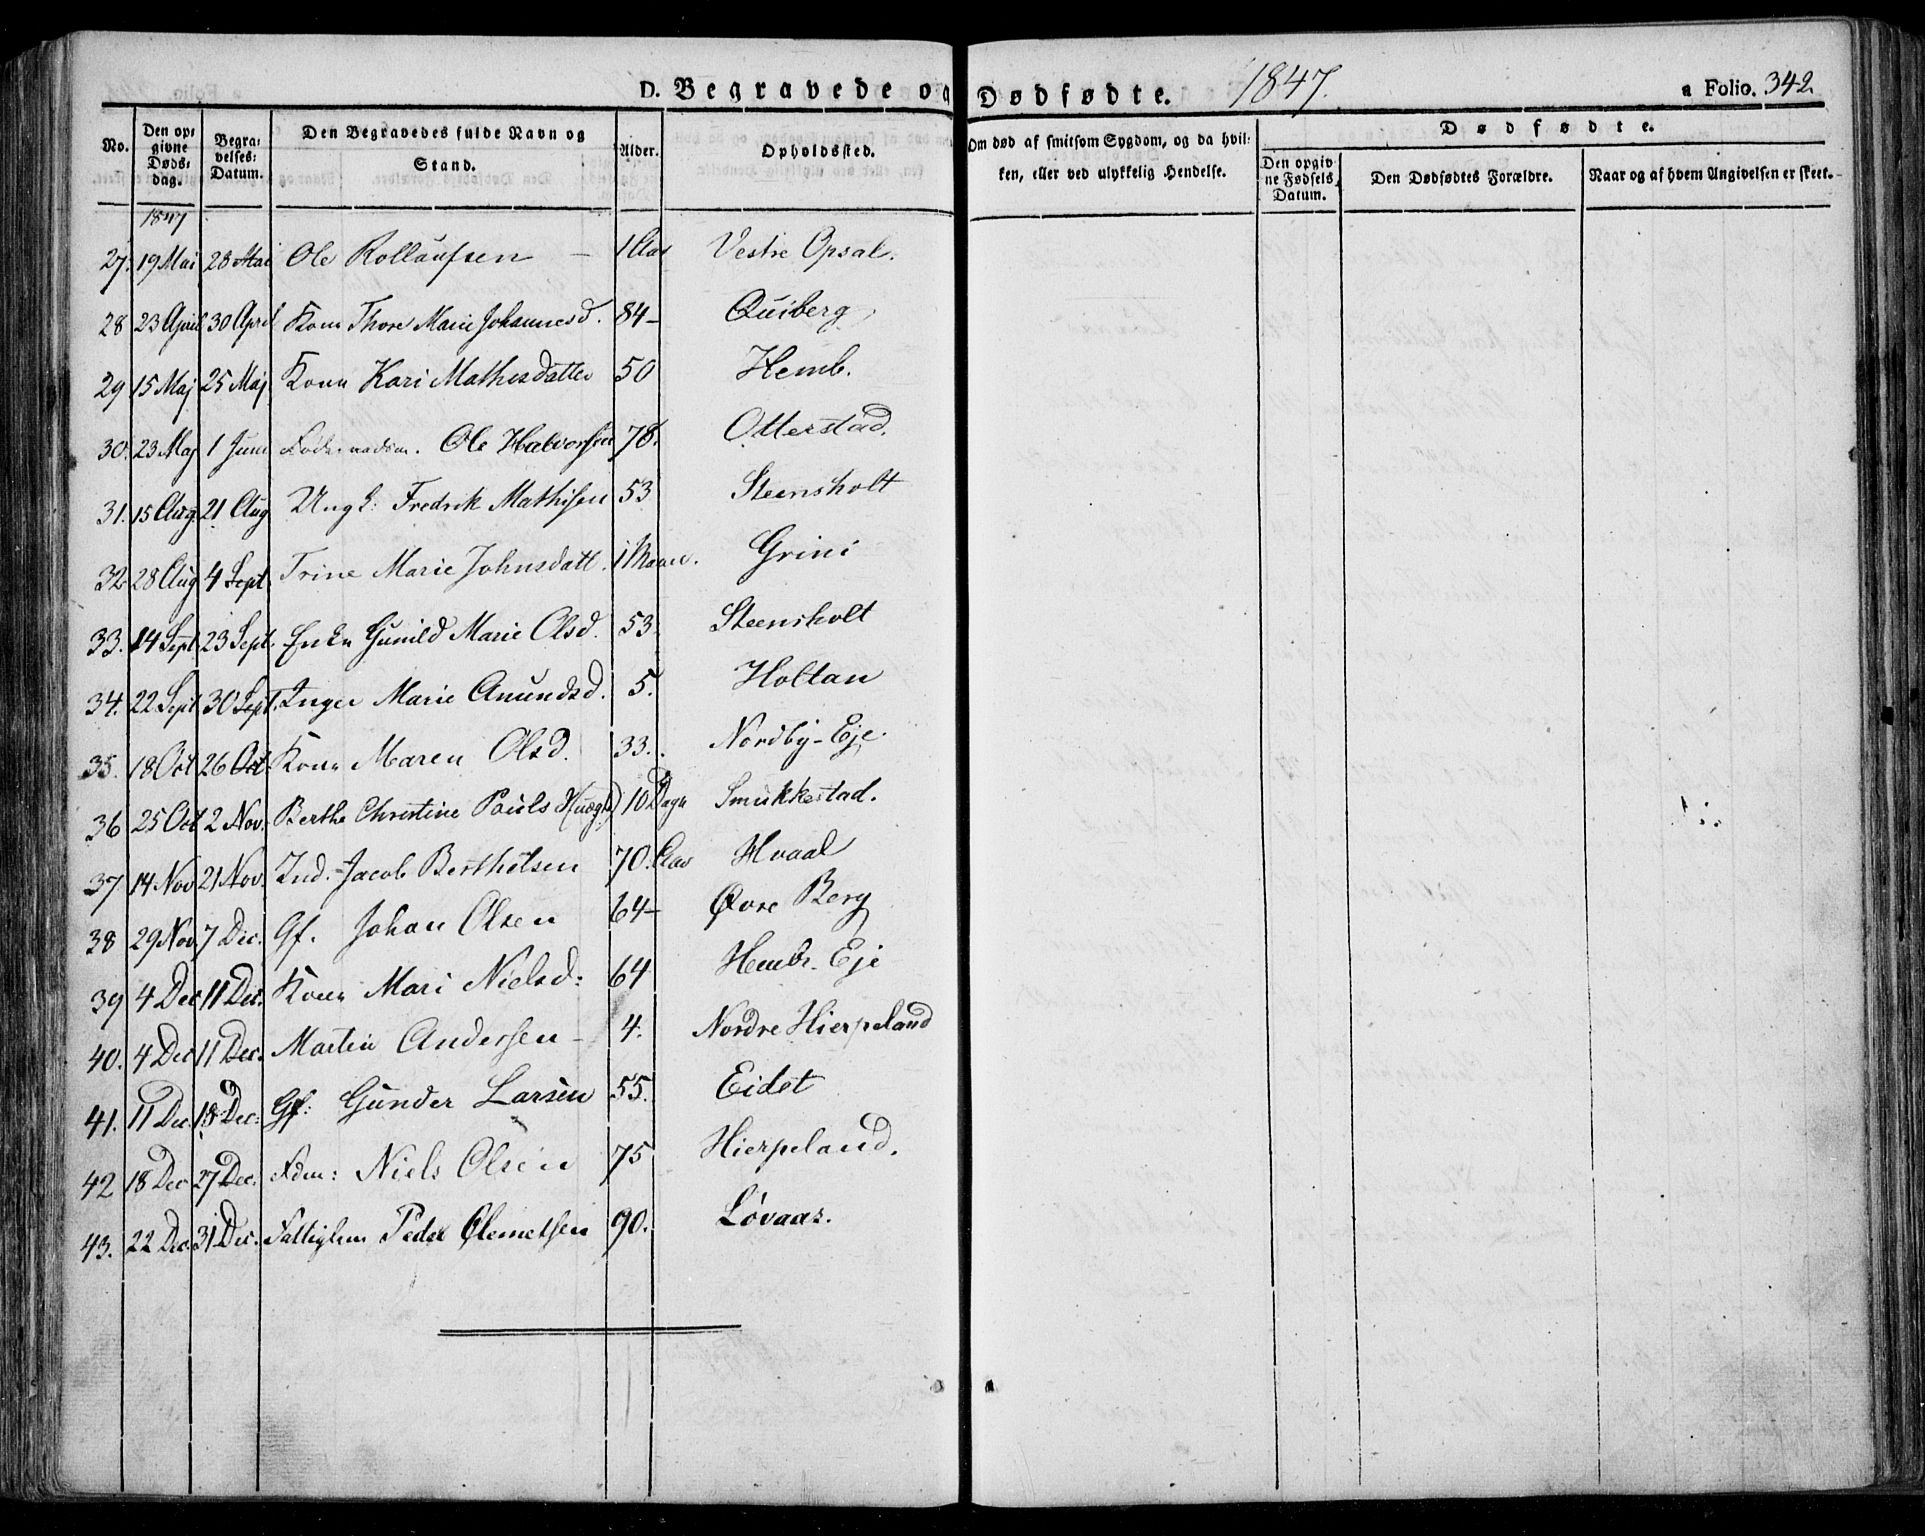 D. Begravede og Dødfødte. 1847. a Folio. 342
No. Den opgivne Dødsdag. Begravelses-Datum. Den Begravedes fulde Navn og Stand. Alder. Opholdssted. Om død af smitsom Sygdom, og da hvilken, eller ved ulykkelig Hendelse. Dødfødte. Den opgivne Fødsels Datum. Den Dødfødtes Forældre. Naar og af hvem Angivelsen er skeet.
1847
27. 19 Mai 28 Mai Ole Rollaufsen – 1 Aar Vestre Opsal.
28 23 April 30 April Kone Thore Marie Johannesd. 84– Quiberg
29 15 Maj 25 Maj Kone Kari Mathisdatter 50 Hemb.
30. 23 Maj 1 Juni Ole Halvorsen 78. Otterstad.
31. 15 Aug 21 Aug Ungk: Fredrik Mathisen 53 Steensholt
32 28 Aug 4 Sept. Trine Marie Johnsdatt. 1 Maan. Grini
33. 14 Sept 23 Sept. Enke Gunild Marie Olsd. 53 Steensholt
34. 22 Sept 30 Sept. Inger Marie Anundsd. 5. Holtan
35. 18 Oct 26 Oct. Kone Maren Olsd. 33. Nordby-Eje.
36 25 Oct 2 Nov. Berthe Christine Pauls 10 Dage Smukkestad.
37 14 Nov 21 Nov. Ind. Jacob Berthelsen 70. Aar Hvaal
38 29 Nov. 7 Dec. Gf. Johan Olsen 64– Øvre Berg
39 4 Dec 11 Dec. Kone Mari Nielsd: 64 Hembr. Eje
40. 4 Dec 11 Dec. Martin Andersen – 4. Nordre Hierpeland
41. 11 Dec 18 Dec: Gf: Gunder Larsen 55. Eidet
42 18 Dec 27 Dec. Fdm: Niels Olsen 75 Hierpeland.
43. 22 Dec. 31 Dec. Fattiglem Peder Clemetsen 90. Løvaas.